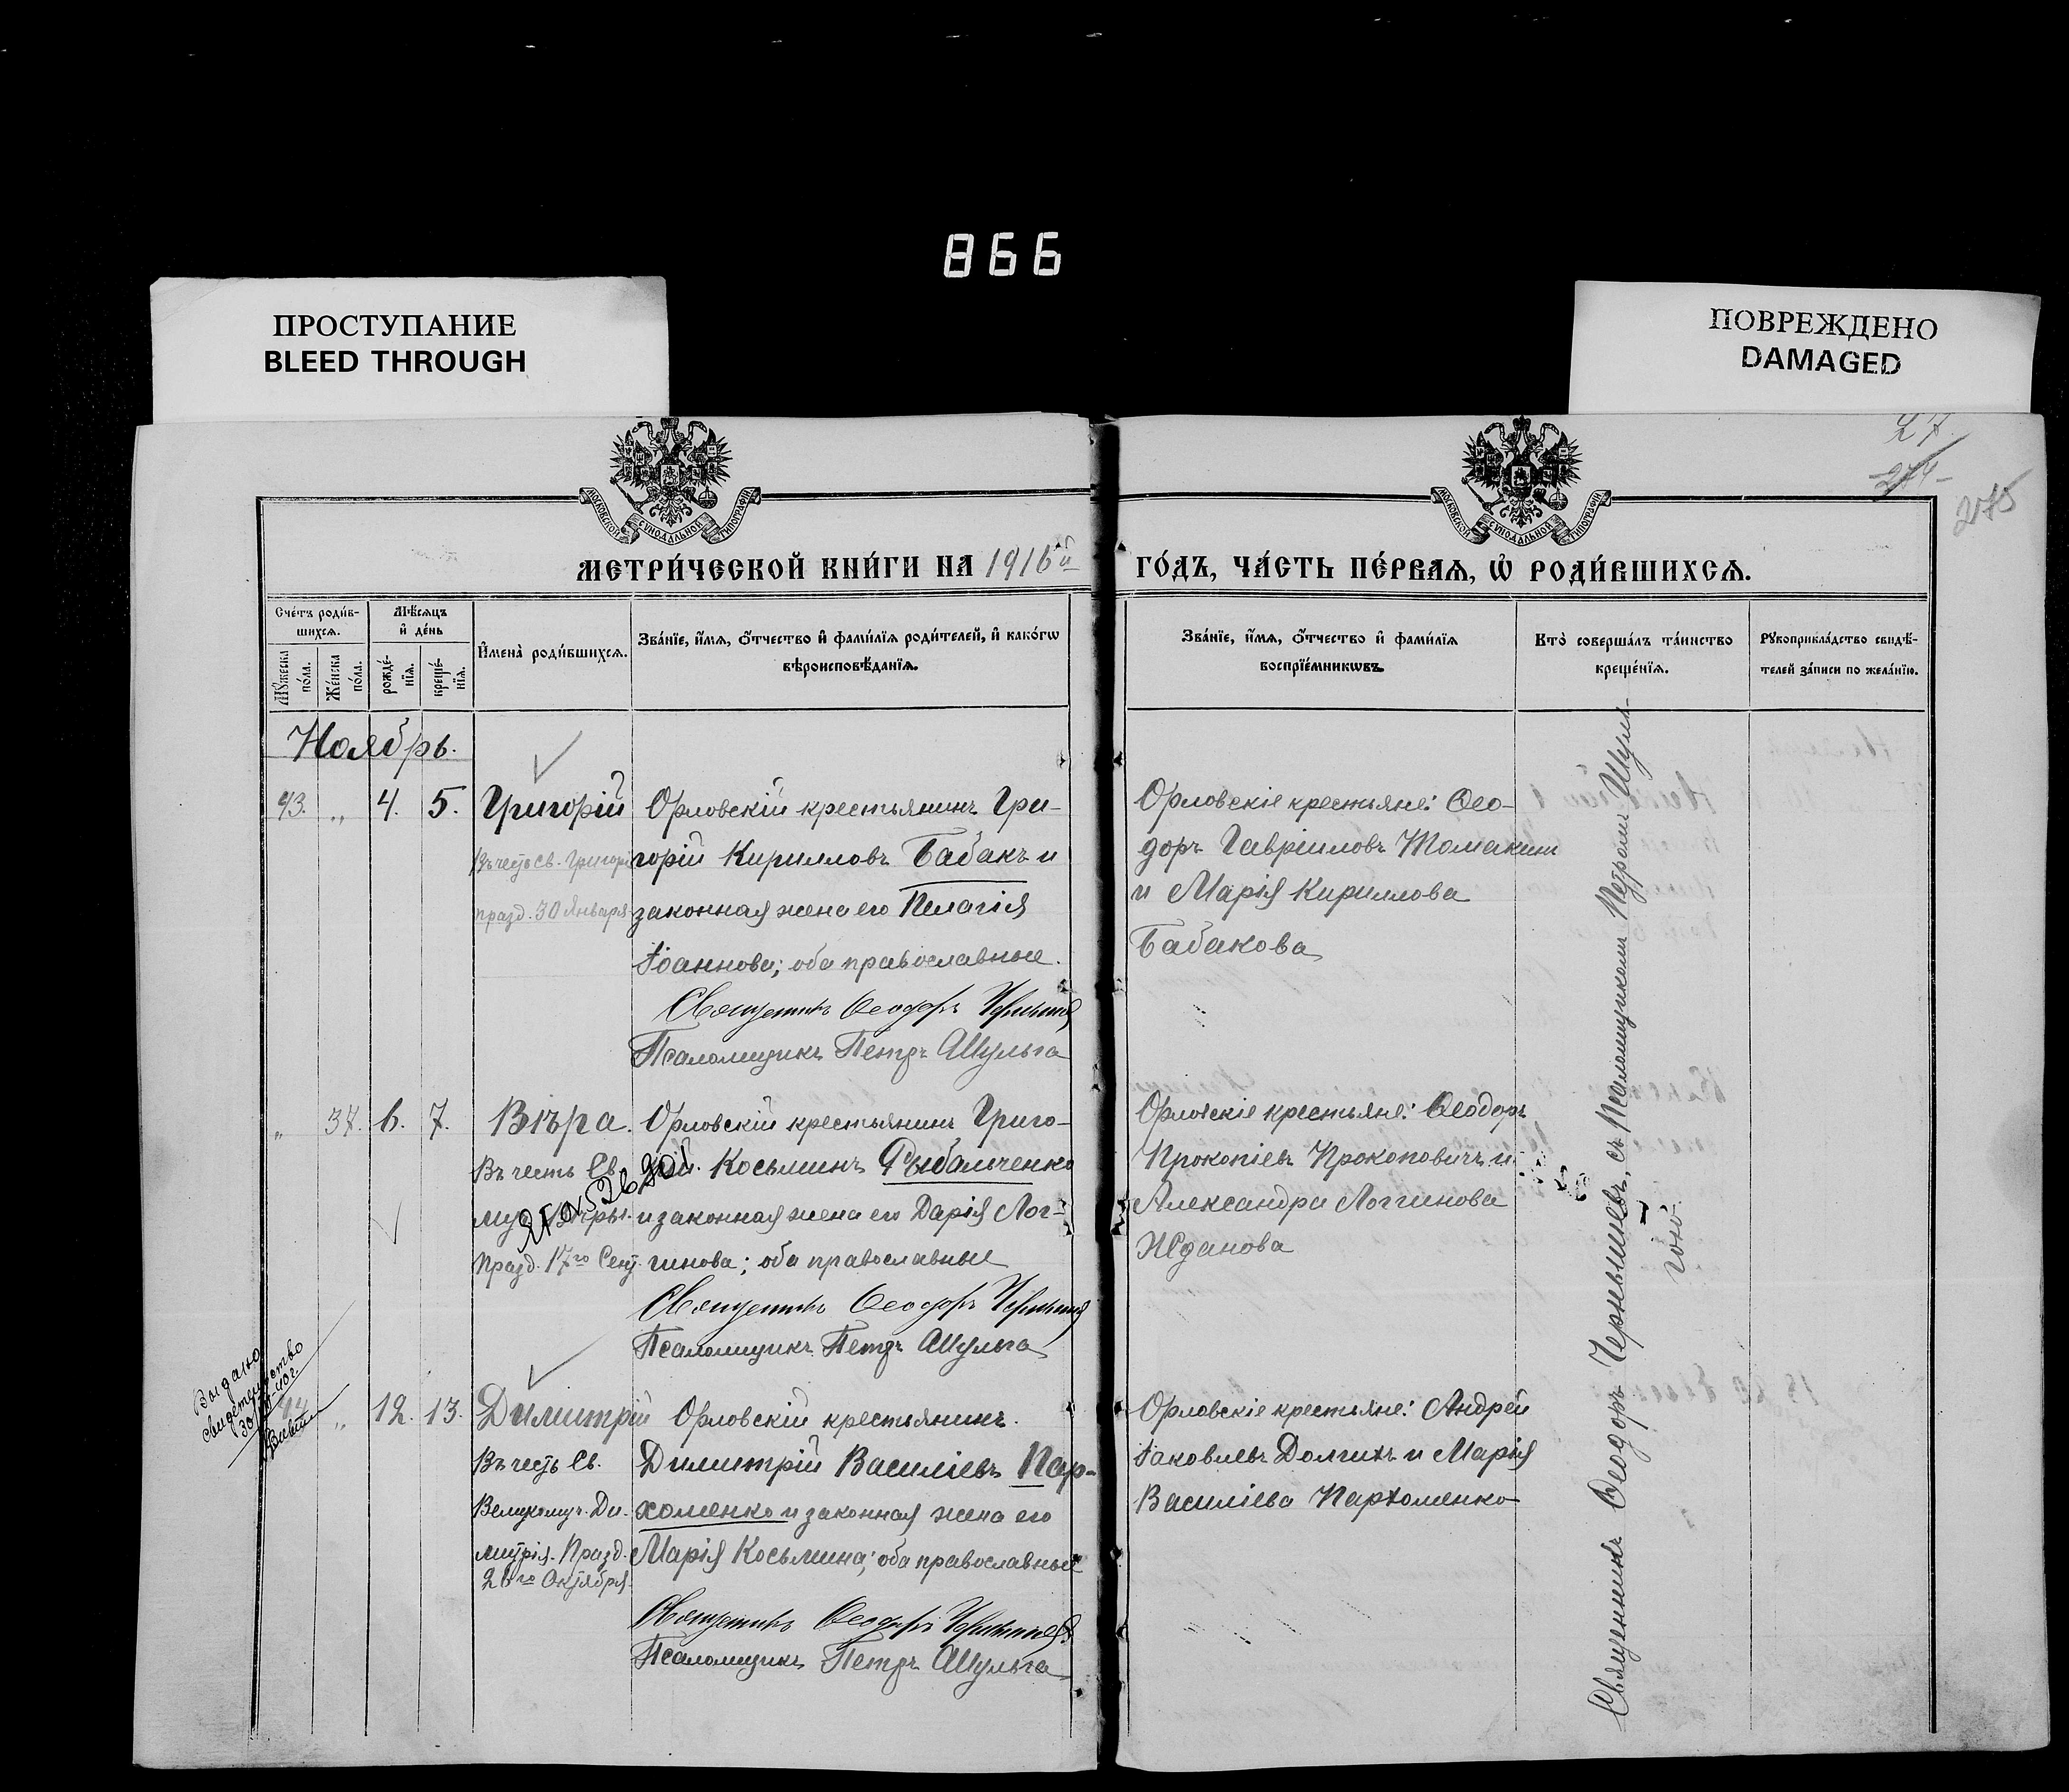 866
ПРОСТУПАНИЕ
BLEED THROUGH
ПОВРЕЖДЕНО
DAMAGED
27.
274
275
МОСКОВСКОЙ СѴНОДАЛЬНОЙ ТИПОГРАФІИ
МОСКОВСКОЙ СѴНОДАЛЬНОЙ ТИПОГРАФІИ
МЕТРИ́ЧЕСКОЙ КНИ́ГИ НА 1916й
ГО́ДЪ, ЧА́СТЬ ПЕ́РВАѦ, Ѡ҆ РОДИ́ВШИХСѦ.
Сче́тъ роди́в-
шихсѧ.
Мꙋ́жеска
по́ла.
Же́нска
по́ла.
Мѣ́сѧцъ
и҆ де́нь
рожде́-
нїѧ.
креще́-
нїѧ.
И҆мена̀ роди́вшихсѧ.
Зва́нїе, и҆́мѧ, ѻ҆́тчество и҆ фами́лїѧ роди́телей, и҆ како́гѡ
вѣроисповѣ́данїѧ.
Зва́нїе, и҆́мѧ, ѻ҆́тчество и҆ фами́лїѧ
воспрїе́мникѡвъ.
Кто̀ соверша́лъ та́инство
креще́нїѧ.
Рꙋкоприкла́дство свидѣ́-
телей за́писи по жела́нїю.
Ноябрь.
43. „ 4. 5. Григорій
Въ честь св. Григорі
празд. 30 Января
Орловскій крестьянинъ Гри-
горій Кирилловъ Бабакъ и
законная жена его Пелагія
Іоаннова; оба православные.
Священникъ Ѳеодоръ Чернышевъ
Псаломщикъ Петръ Шульга
Орловскіе крестьяне: Ѳео-
доръ Гавріиловъ Томакинъ
и Марія Кириллова
Бабакова
„ 37. 6. 7. Вѣра.
Въ честь Св.
муч. Вѣры.
Празд. 17го Сент.
Орловскій крестьянинъ Григо-
рій Косьминъ Рыбальченко
и законная жена его Дарія Лог-
гинова; оба православные
Священникъ Ѳеодоръ Чернышевъ
Псаломщикъ Петръ Шульга
Орловскіе крестьяне: Ѳеодоръ
Прокопіевъ Прокоповичъ и
Александра Логгинова
Жданова
Выдано
свидетельство
44. „ 12. 13. Димитрій
Въ честь Св.
Великомуч. Ди-
митрія. Празд.
26го Октября.
Орловскій крестьянинъ
Димитрій Василіевъ Пар-
хоменко и законная жена его
Марія Косьмина; оба православные
Священникъ Ѳеодоръ Чернышевъ
Псаломщикъ Петръ Шульга
Орловскіе крестьяне: Андрей
Іаковлевъ Долгихъ и Марія
Василіева Пархоменко
Священникъ Ѳеодоръ Чернышевъ, съ Псаломщикомъ Петромъ Шуль-
гою